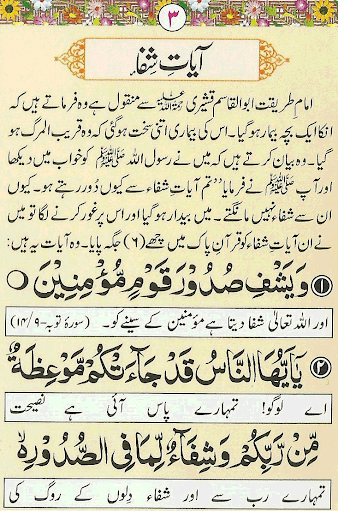 ۳
آیاتِ شِفاء
امامِ طریقت ابوالقاسم قشیری رحمۃ اللہ علیہ سے منقول ہے وہ فرماتے ہیں کہ
انکا ایک بچہ بیمار ہو گیا۔ اس کی بیماری اتنی سخت ہو گئی کہ وہ قریب المرگ ہو
گیا۔ وہ بیان کرتے ہیں کہ میں نے رسول اللہ ﷺ کو خواب میں دیکھا
اور آپ ﷺ نے فرمایا ”تم آیاتِ شفاء سے کیوں دُور رہتے ہو۔ کیوں
ان سے شفاء نہیں مانگتے۔ میں بیدار ہو گیا اور اس پر غور کرنے لگا تو میں
نے ان آیاتِ شفاء کو قرآنِ پاک میں چھے (۶) جگہ پایا۔ وہ آیات یہ ہیں:
۱ وَيَشْفِ صُدُوْرَ قَوْمٍ مُّؤْمِنِيْنَ ○
اور اللہ تعالیٰ شفا دیتا ہے مؤمنین کے سینے کو۔ (سورۂ توبہ-۹/۱۴)
۲ يٰۤاَيُّهَا النَّاسُ قَدْ جَآءَتْكُمْ مَّوْعِظَةٌ
اے لوگو! تمہارے پاس آئی ہے نصیحت
مِّنْ رَّبِّكُمْ وَشِفَآءٌ لِّمَا فِى الصُّدُوْرِ ۙ
تمہارے رب سے اور شفاء دِلوں کے روگ کی